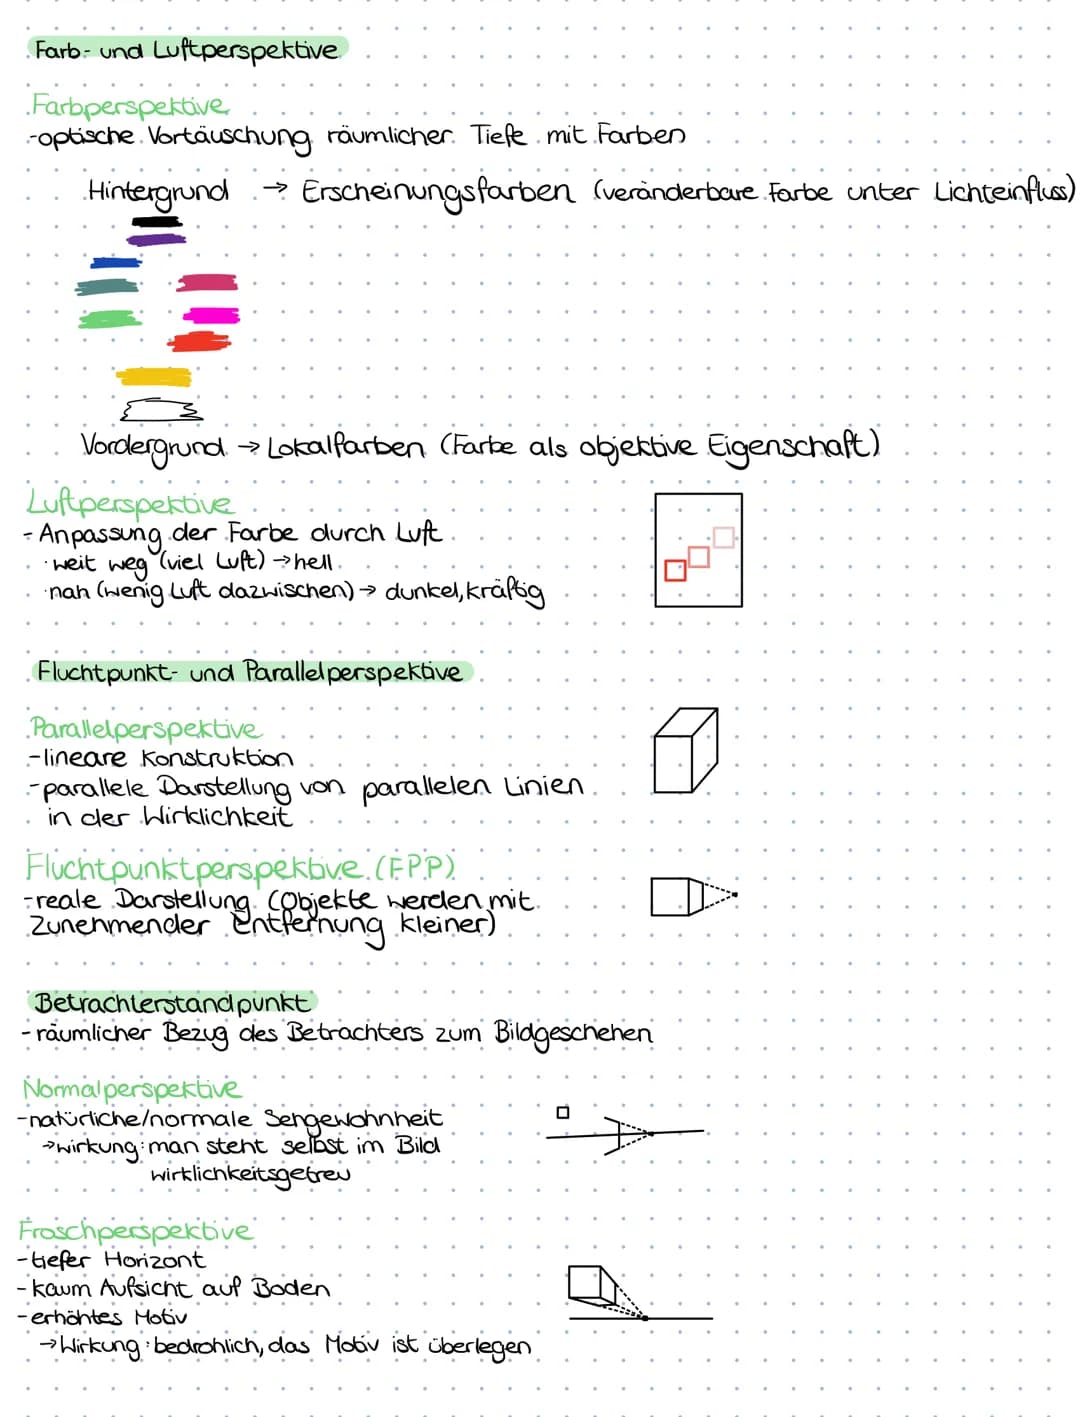 Farb- und Luftperspektive
Farbperspektive
-optische Vortäuschung räumlicher Tiefe mit Farben
Hintergrund → Erscheinungsfarben (veränderbare Farbe unter Lichteinfluss)
Vordergrund → Lokalfarben (Farbe als objektive Eigenschaft)
Luftperspektive
- Anpassung der Farbe durch Luft
· weit weg (viel Luft) → hell
· nah (wenig Luft dazwischen) → dunkel, kräftig
Fluchtpunkt- und Parallelperspektive
Parallelperspektive
-lineare Konstruktion
-parallele Darstellung von parallelen Linien
in der Wirklichkeit
Fluchtpunktperspektive (FPP)
-reale Darstellung (Objekte werden mit
Zunehmender Entfernung kleiner)
Betrachterstandpunkt
- räumlicher Bezug des Betrachters zum Bildgeschehen
Normalperspektive
-natürliche/normale Sehgewohnheit
→wirkung: man steht selbst im Bild
wirklichkeitsgetreu
Froschperspektive
-tiefer Horizont
- kaum Aufsicht auf Boden
-erhöhtes Motiv
→Wirkung: bedrohlich, das Motiv ist überlegen